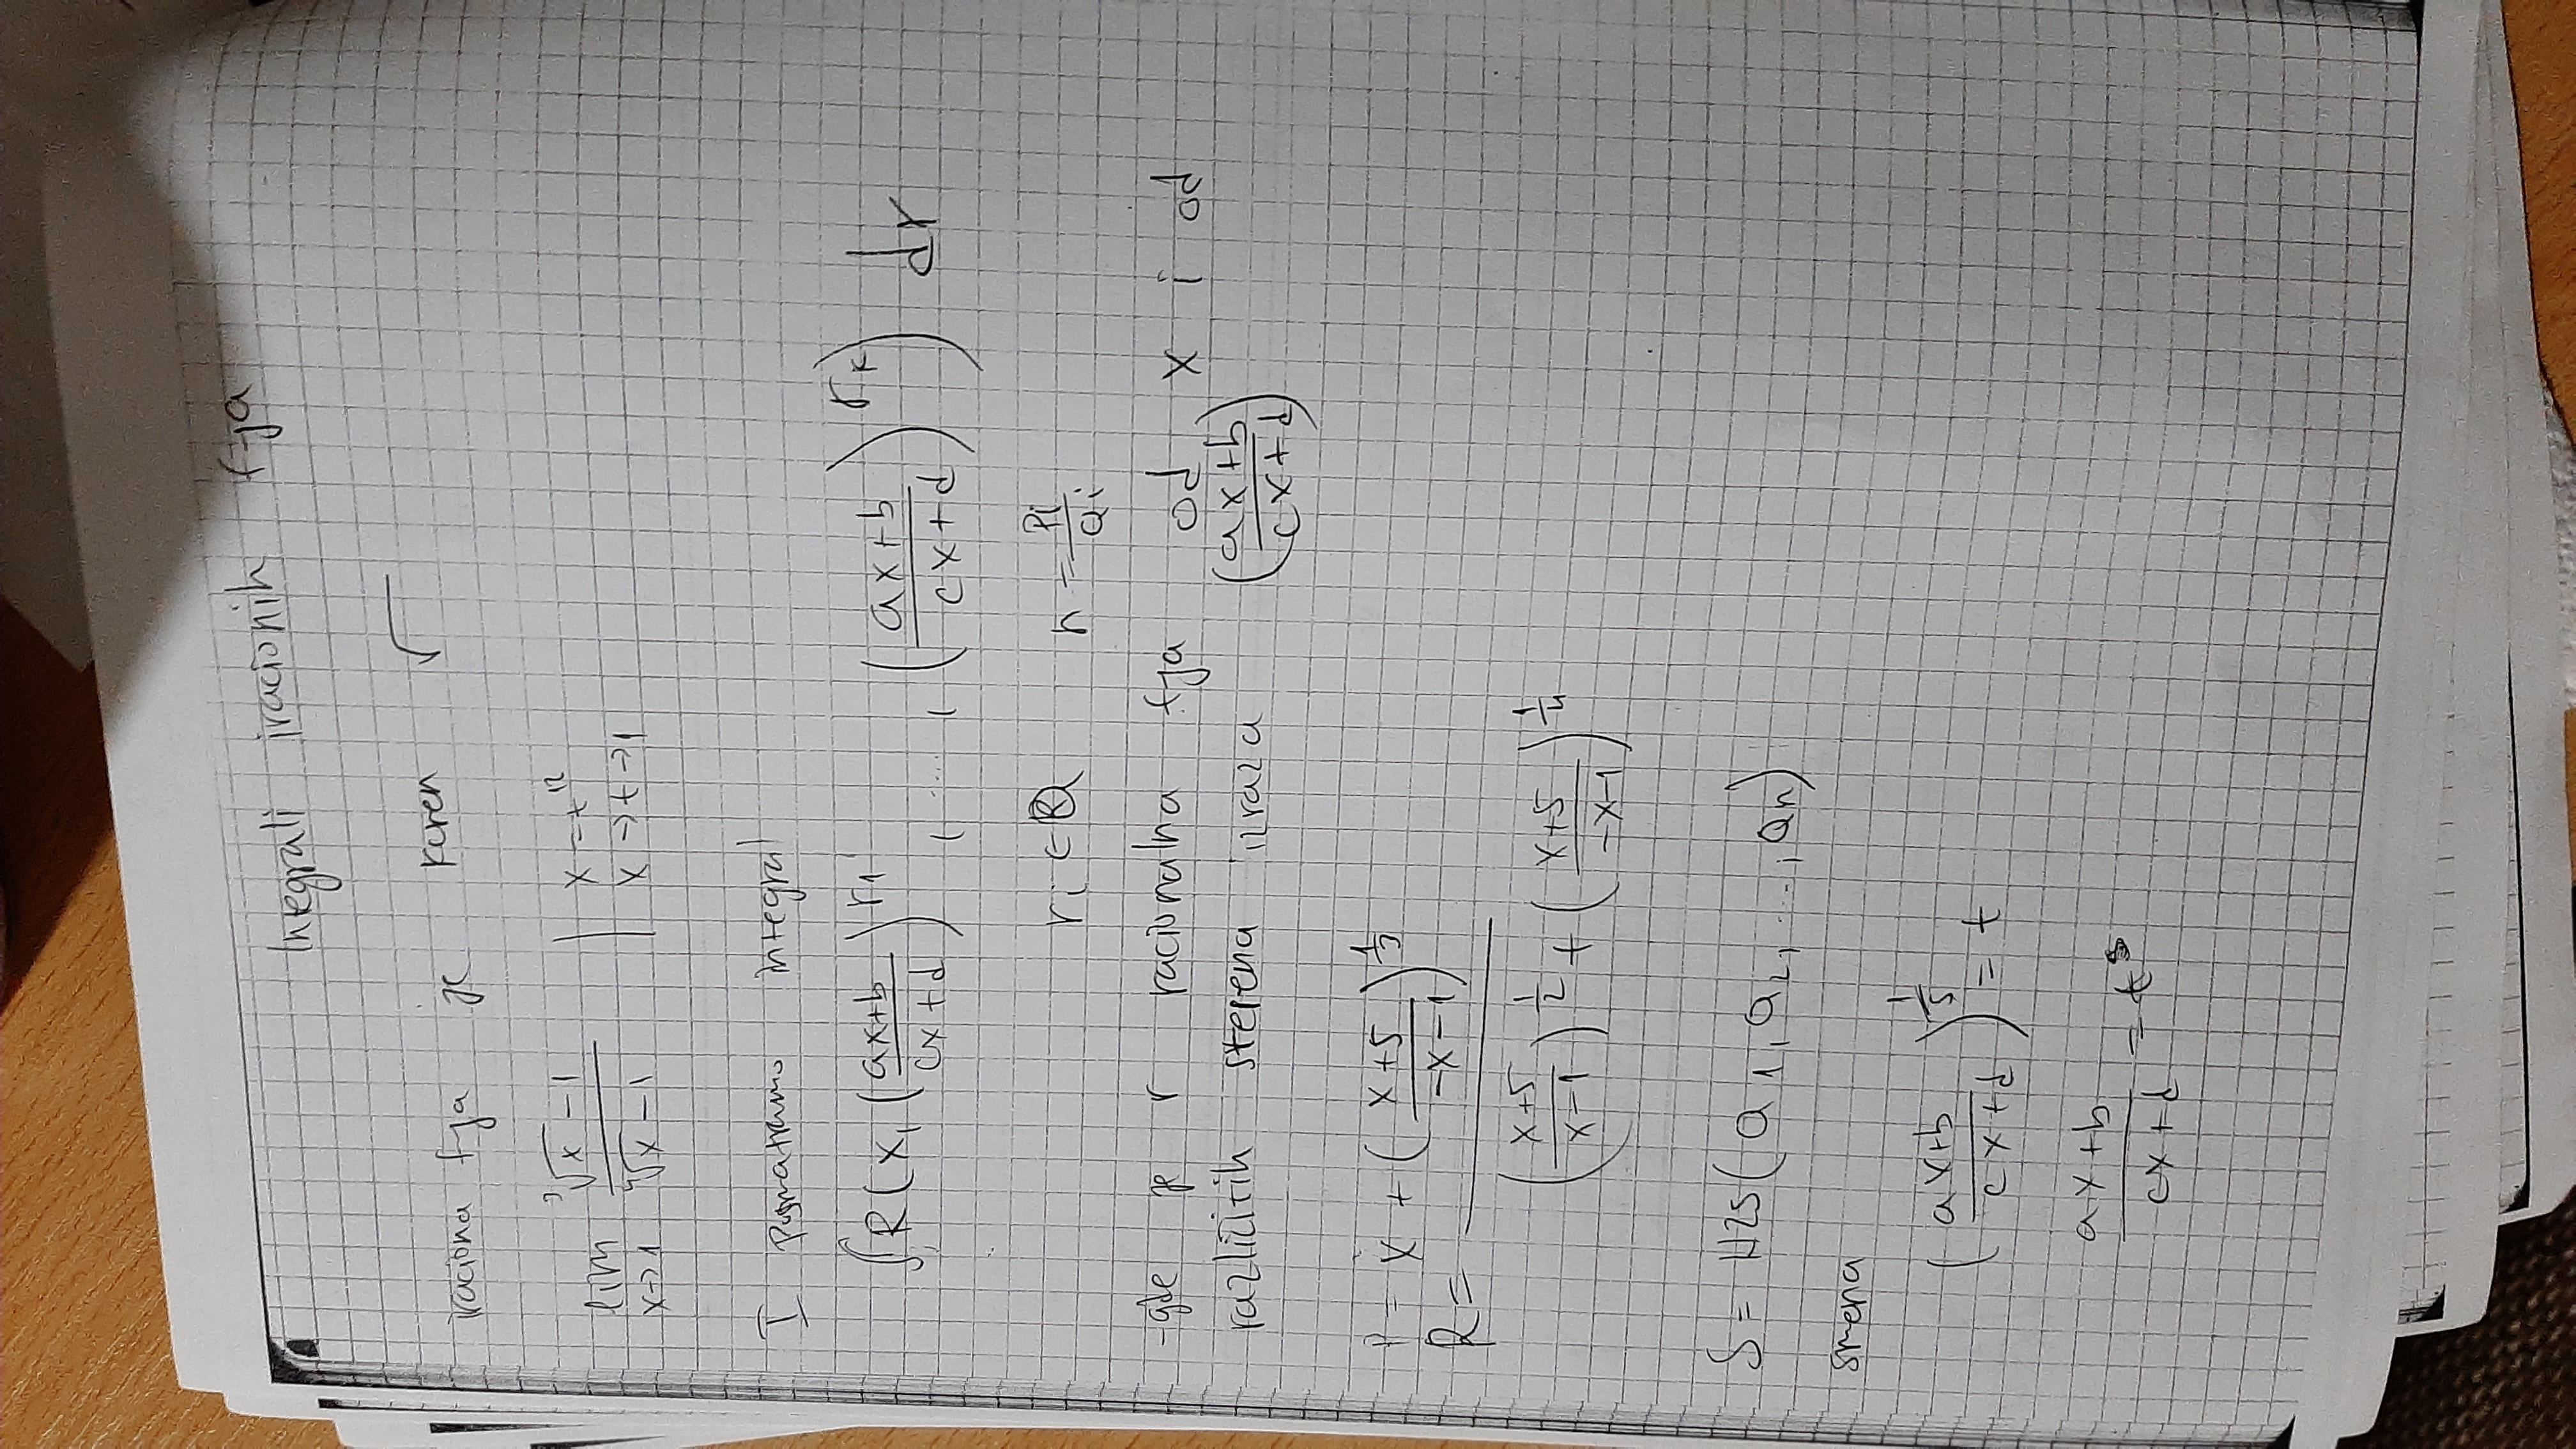 Integrali iracionih fja
iraciona fja je koren √
lim x→1 (∛x - 1)/(∜x - 1) | x = t^12
x → t → 1
I Posmatramo integral
∫R(x, ((ax+b)/(cx+d))^r1, ...., ((ax+b)/(cx+d))^rk) dx
ri ∈ Q ri = pi/qi
-gde je r racionalna fja od x i od
različitih stepena izraza ((ax+b)/(cx+d))
R = (x + ((x+5)/(-x-1))^(1/3)) / (((x+5)/(x-1))^(1/2) + ((x+5)/(-x-1))^(1/4))
S = NZS(a1, a2, ..., an)
smena
((ax+b)/(cx+d))^(1/s) = t
(ax+b)/(cx+d) = t^s